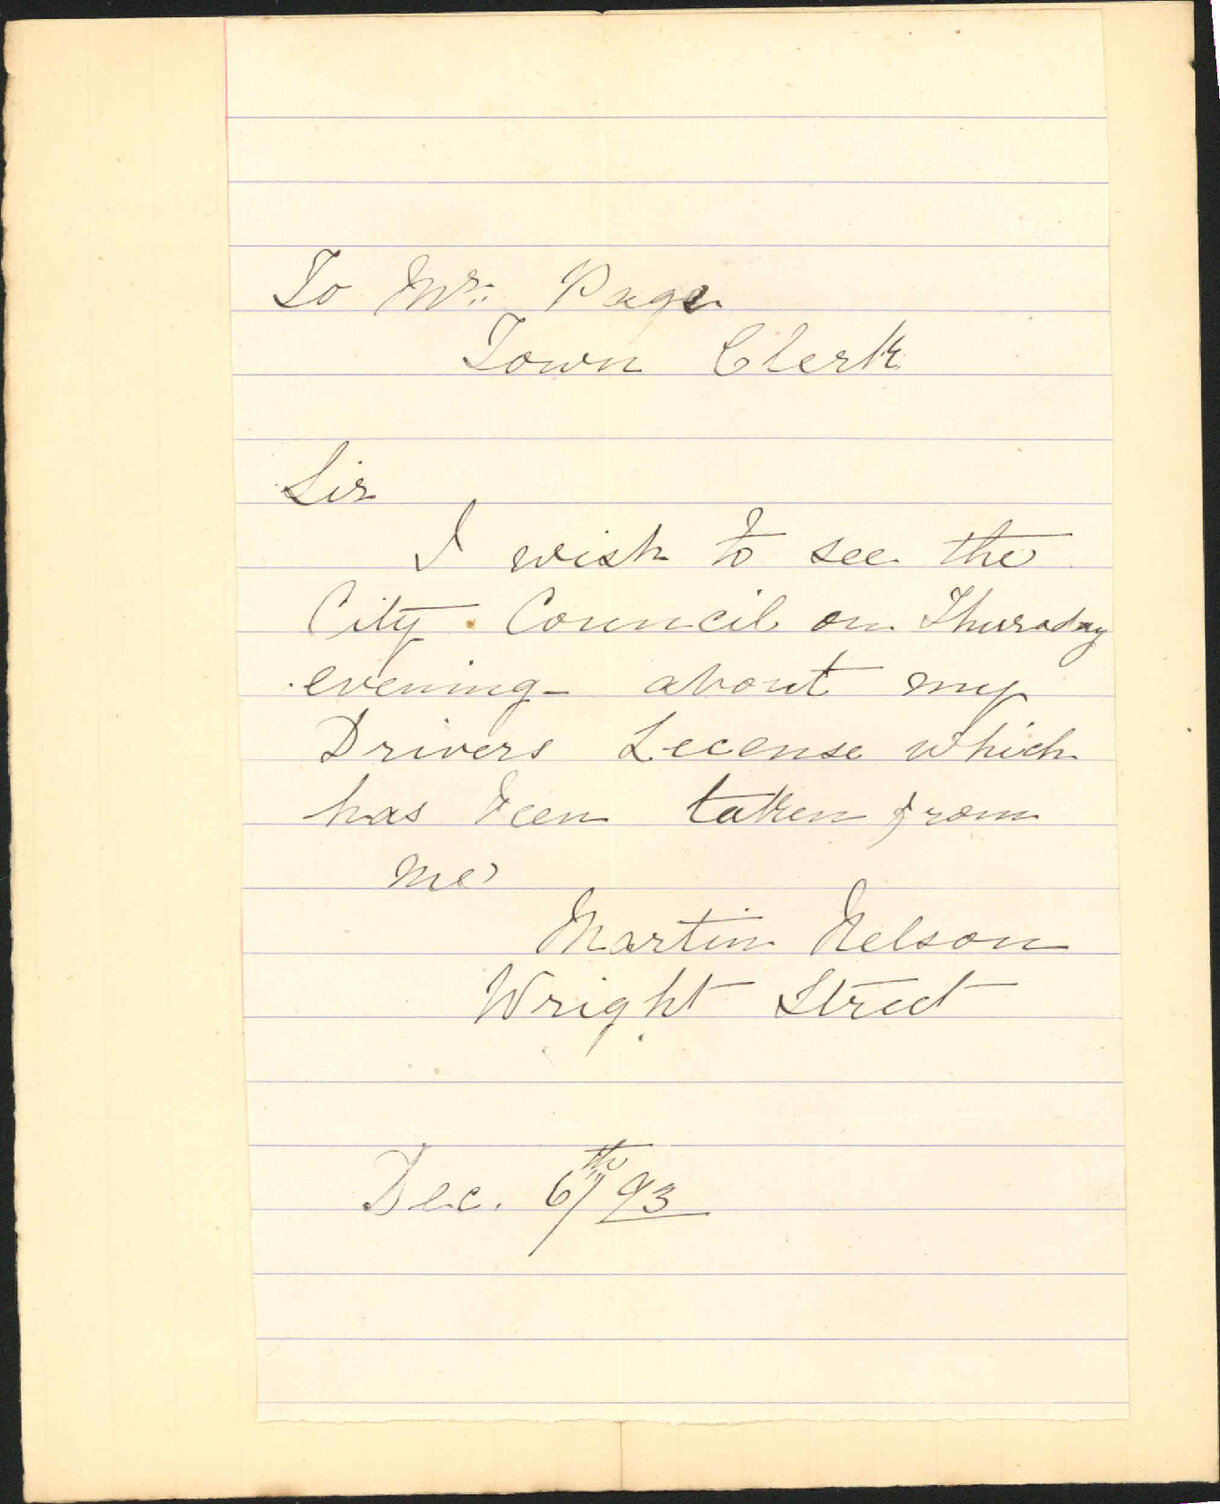 To Mr. Page
Town Clerk
Sir
I wish to see the
City Council on Thursday
evening about my
Drivers Lecense which
has been taken from
me
Martin Nelson
Wright Street
Dec. 6th/93